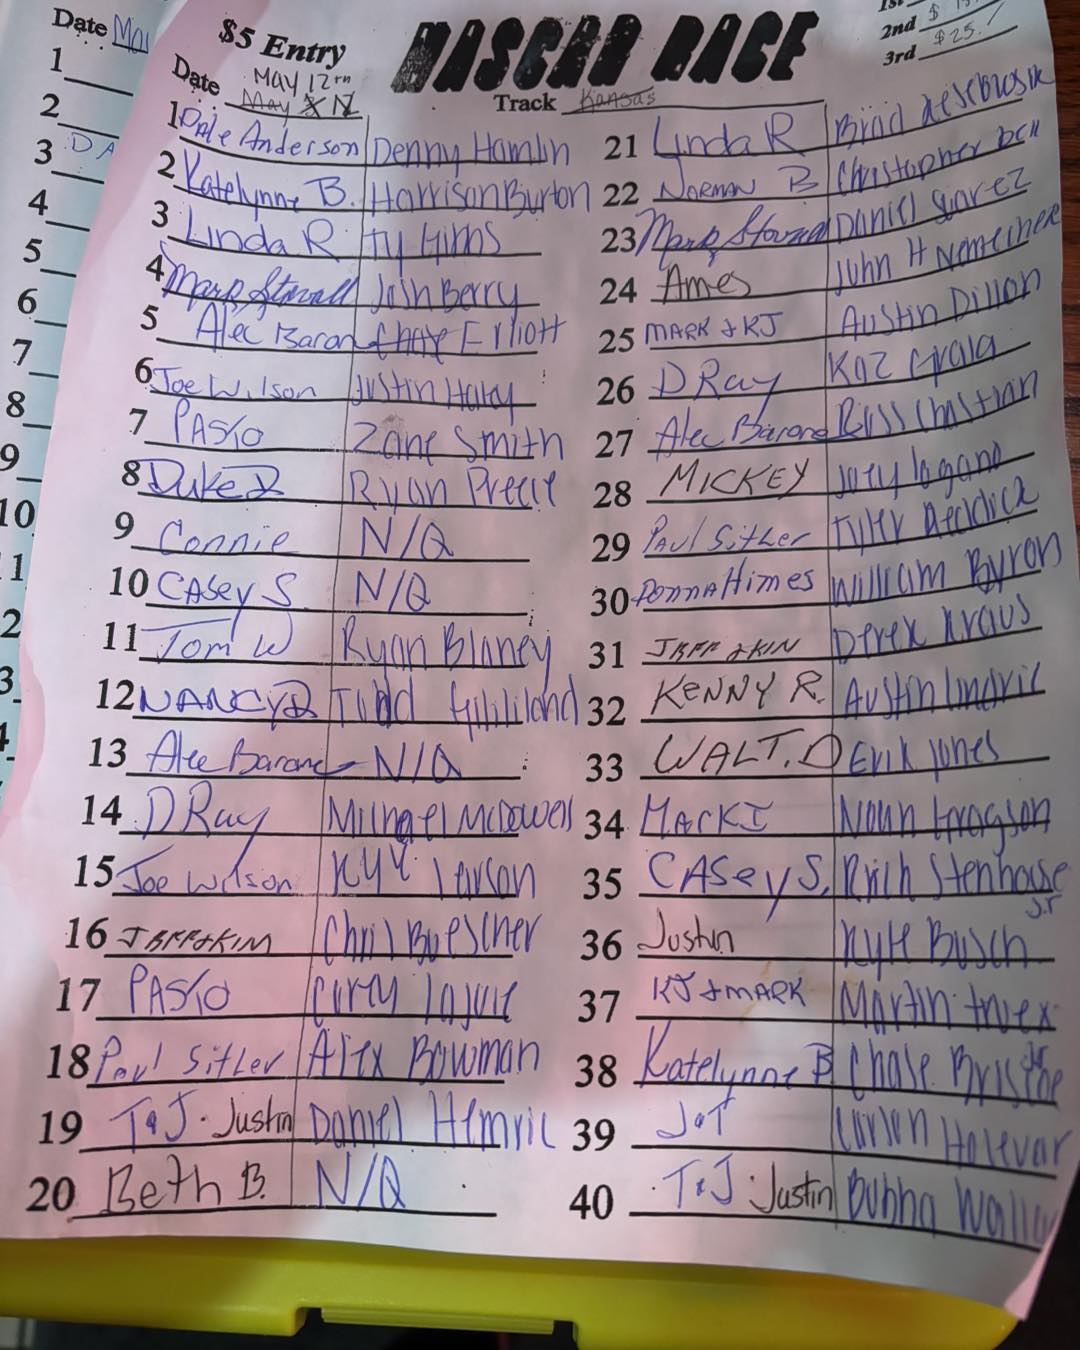 Date
1
2
3 DA
4
5
6
7
8
9
10
$5 Entry
NASCAR RACE
2nd $
3rd $25.
Date MAY 12TH
May N
Track Kansas
1 Dale Anderson Denny Hamlin
2 Katelynne B. Harrison Burton
3 Linda R Ty Gibbs
4 Mark Stovall Josh Berry
5 Alec Baron Chase Elliott
6 Joe Wilson Justin Haley
7 PASIO Zane Smith
8 Duke D Ryan Preece
9 Connie N/Q
10 CASey S. N/Q
11 Tom W Ryan Blaney
12 NANCY D Todd Gilliland
13 Alec Barone N/Q
14 D Ray Michael McDowell
15 Joe Wilson Kyle Larson
16 JEFF & KIM Chris Buescher
17 PASIO Corey Lajoie
18 Paul Sitler Alex Bowman
19 T&J. Justin Daniel Hemric
20 Beth B. N/Q
21 Linda R Brad Keselowski
22 NORMAN B Christopher Bell
23 Mark Stovall Daniel Suarez
24 Ames John H Nemechek
25 MARK & KJ Austin Dillon
26 D Ray Kaz Grala
27 Alec Barone Ross Chastian
28 MICKEY Joey Logano
29 PAUL Sitler Tyler Reddick
30 Donna Himes William Byron
31 JEFF & KIM Derek Kraus
32 KENNY R. Austin Cindric
33 WALT. D Erik Jones
34 MARK J Noah Gragson
35 CASey S. Rich Stenhouse Jr
36 Justin Kyle Busch
37 KJ & MARK Martin Truex Jr
38 Katelynne B Chase Briscoe
39 J&T Carson Hocevar
40 T&J Justin Bubba Walla